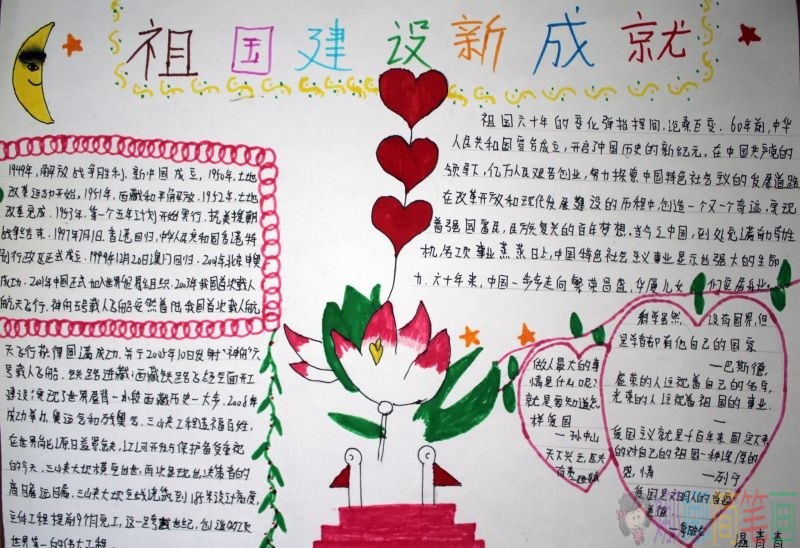 祖国建设新成就
祖国六十年的变化弹指挥间,沧桑百变。60年前,中华
人民共和国宣告成立,开启了中国历史的新纪元。在中国共产党的
领导下,亿万人民艰苦创业,努力探索中国特色社会主义的发展道路
在改革开放和现代化发展建设的历程中,创造一个又一个奇迹,实现
着强国富民,民族复兴的百年梦想。当今之中国,到处充满有勃勃生
机,各项事业蒸蒸日上,中国特色社会主义事业显示出强大的生命
力。六十年来,中国一步步走向繁荣昌盛,华厦儿女
1949年,解放战争胜利,新中国成立,1950年,土地
改革运动开始。1951年,西藏和平解放。1952年,土地
改革完成。1953年,第一个五年计划开始累行,抗美援朝
战争结束。1997年7月1日,香港回归,中华人民共和国香港特
别行政区正式成立。1999年12月20日澳门回归。2001年北京申奥
成功。2001年中国正式加世界贸易组织。2003年我国首次载人
航天飞行,神舟五号载人飞船安然着陆我国首次载人航
天飞行获得圆满成功,并于2005年10月发射"神舟"六
号载人飞船,铁路进藏:西藏铁路飞经全面开工
建设:实现了世界屋脊一小段西藏历史一大步。2008年
成功举办奥运会和残奥会。三山夹工程造福百姓,
的今天,三山夹大坝横空出世,再次显现出决策者的
高日瞻远曰属。三山夹大坝全线浇筑到185米设计高度,
主体工程提前9个月完工,这一号跨世纪,创造
世界第一的伟大工程。
做人最大的事
情是什么呢?
就是要知道怎
样爱国
—孙中山
天下兴亡,匹夫
有责
科学虽然没有国界,但
是学者却有他自己的国家
—巴斯德
虚荣的人注视着自己的名字,
光荣的人注视着祖国的事业。
爱国主义就是千百年来固定下来
的对自己的祖国一种深厚的
感情
—列宁
爱国是文明人的首要
美德
—拿破仑
温青青